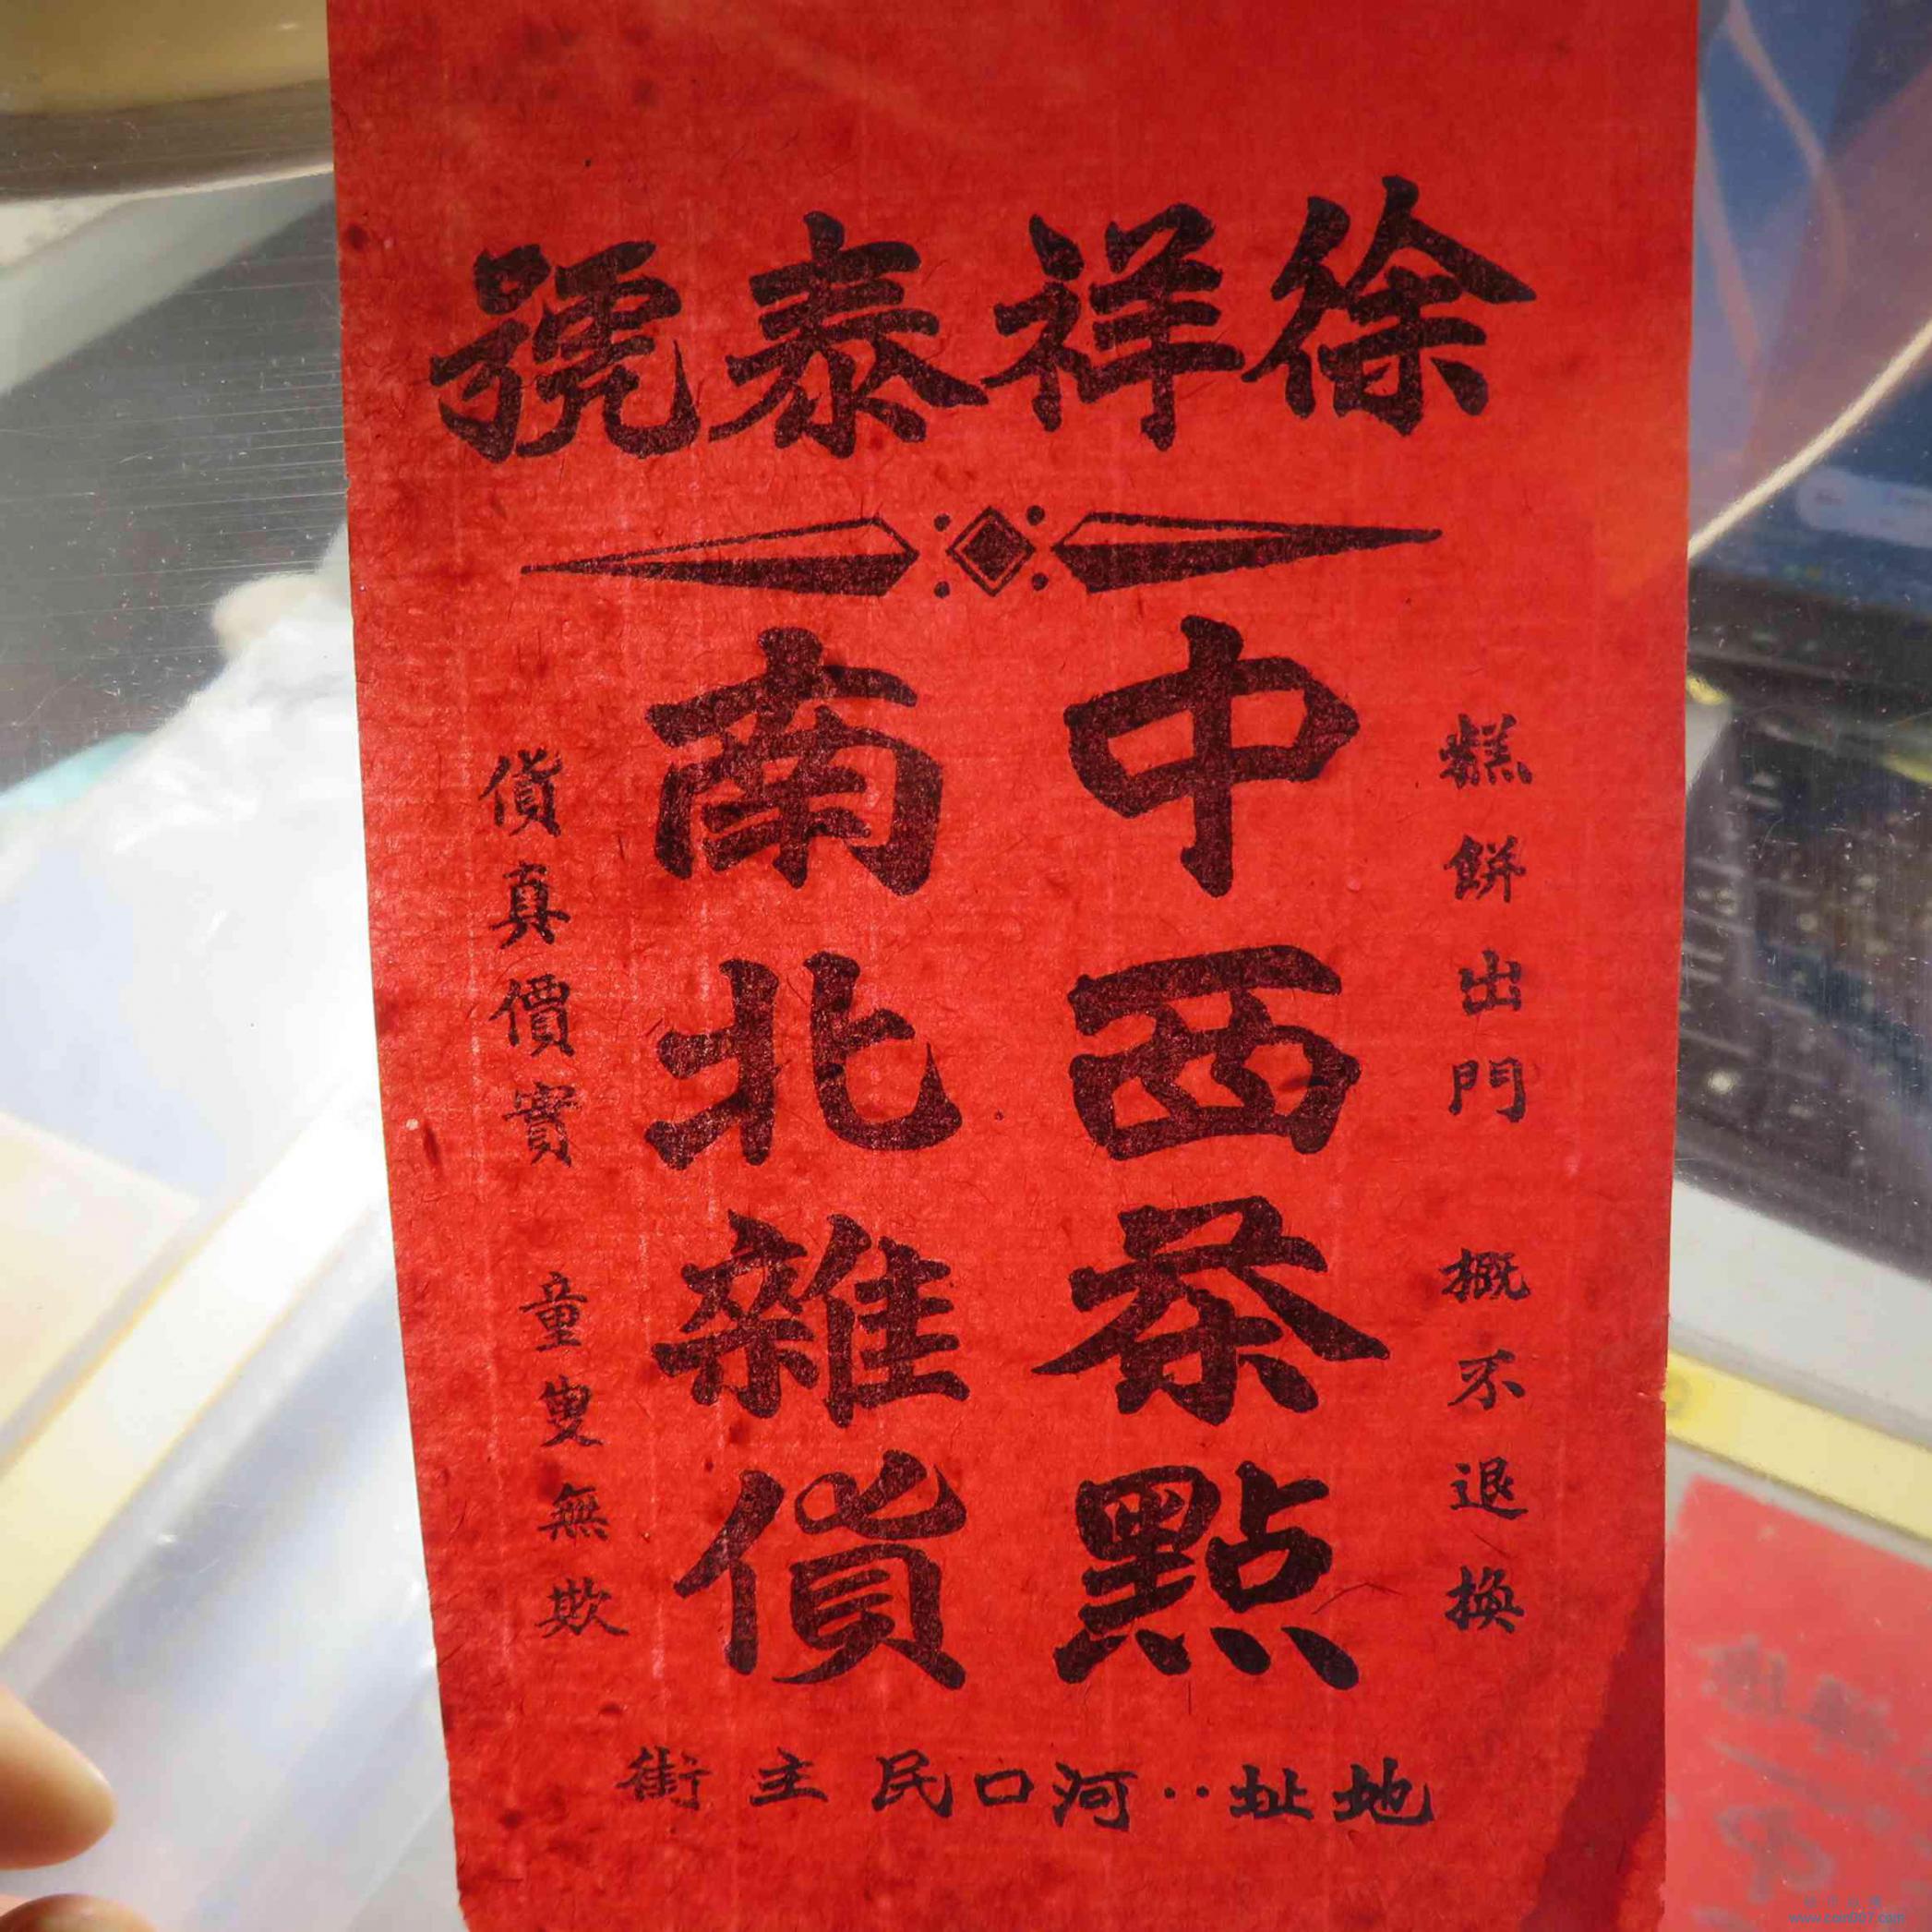 徐祥泰號
糕餅出門 概不退換
中西茶點
南北雜貨
貨真價實 童叟無欺
地址：河口民主街
www.coin007.com